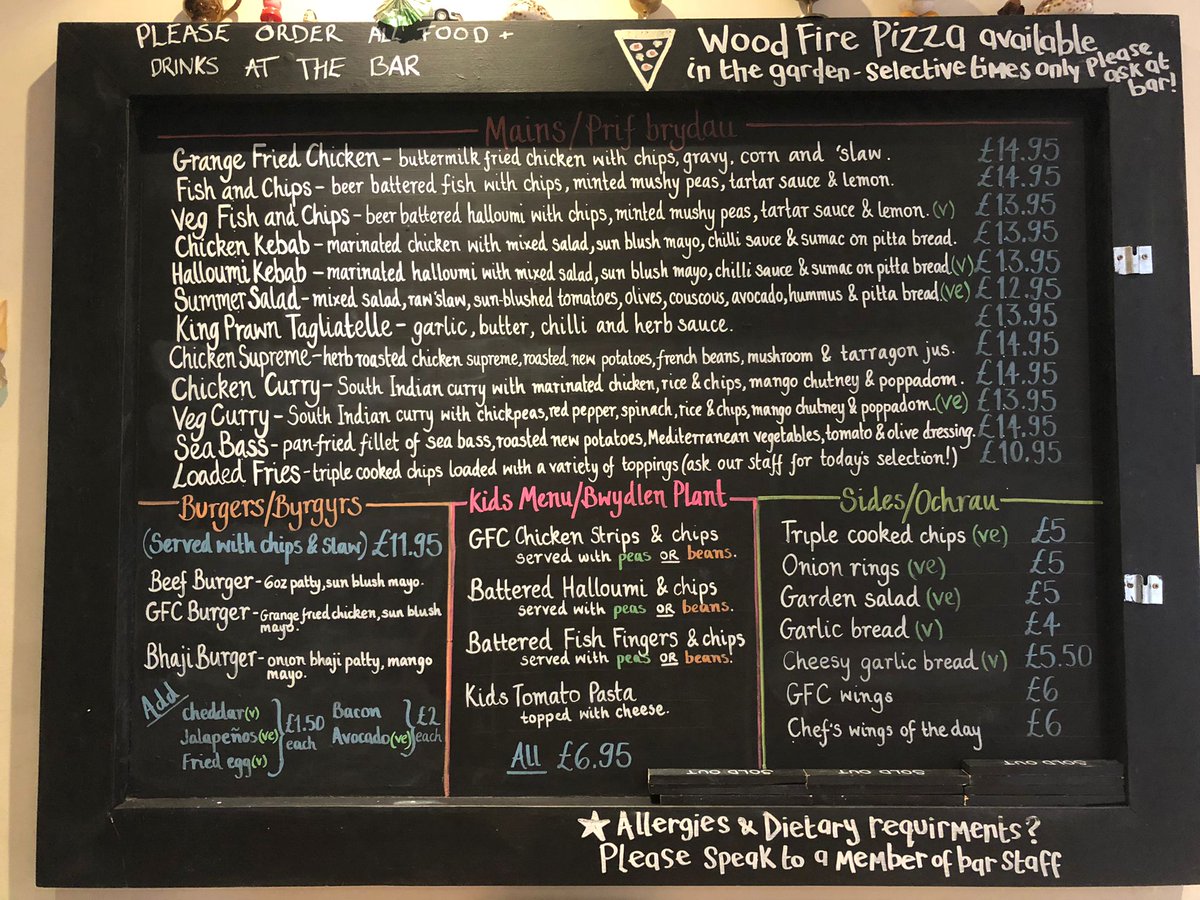 PLEASE ORDER ALL FOOD +
DRINKS AT THE BAR
Wood Fire Pizza available
in the garden - selective times only Please ask at bar!
Mains/Prif brydau
Grange Fried Chicken - buttermilk fried chicken with chips, gravy, corn and 'slaw. £14.95
Fish and Chips - beer battered fish with chips, minted mushy peas, tartar sauce & lemon. £14.95
Veg Fish and Chips - beer battered halloumi with chips, minted mushy peas, tartar sauce & lemon. (v) £13.95
Chicken Kebab - marinated chicken with mixed salad, sun blush mayo, chilli sauce & sumac on pitta bread. £13.95
Halloumi Kebab - marinated halloumi with mixed salad, sun blush mayo, chilli sauce & sumac on pitta bread (v) £13.95
Summer Salad - mixed salad, raw 'slaw, sun-blushed tomatoes, olives, couscous, avocado, hummus & pitta bread (ve) £12.95
King Prawn Tagliatelle - garlic, butter, chilli and herb sauce. £13.95
Chicken Supreme - herb roasted chicken supreme, roasted new potatoes, french beans, mushroom & tarragon jus. £14.95
Chicken Curry - South Indian curry with marinated chicken, rice & chips, mango chutney & poppadom. £14.95
Veg Curry - South Indian curry with chickpeas, red pepper, spinach, rice & chips, mango chutney & poppadom. (ve) £13.95
Sea Bass - pan-fried fillet of sea bass, roasted new potatoes, Mediterranean vegetables, tomato & olive dressing. £14.95
Loaded Fries - triple cooked chips loaded with a variety of toppings (ask our staff for today's selection!) £10.95
Burgers/Byrgyrs
(Served with chips & slaw) £11.95
Beef Burger - 6oz patty, sun blush mayo.
GFC Burger - Grange fried chicken, sun blush
mayo.
Bhaji Burger - onion bhaji patty, mango
mayo.
Add
Cheddar (v)
Jalapeños (ve)
Fried egg (v)
£1.50
each
Bacon
Avocado (ve)
£2
each
Kids Menu/Bwydlen Plant
GFC Chicken Strips & chips
served with peas OR beans.
Battered Halloumi & chips
served with peas OR beans.
Battered Fish Fingers & chips
served with peas OR beans.
Kids Tomato Pasta
topped with cheese.
All £6.95
Sides/Ochrau
Triple cooked chips (ve) £5
Onion rings (ve) £5
Garden salad (ve) £5
Garlic bread (v) £4
Cheesy garlic bread (v) £5.50
GFC wings £6
Chef's wings of the day £6
SOLD OUT SOLD OUT SOLD OUT
★ Allergies & Dietary requirments?
Please speak to a member of bar staff